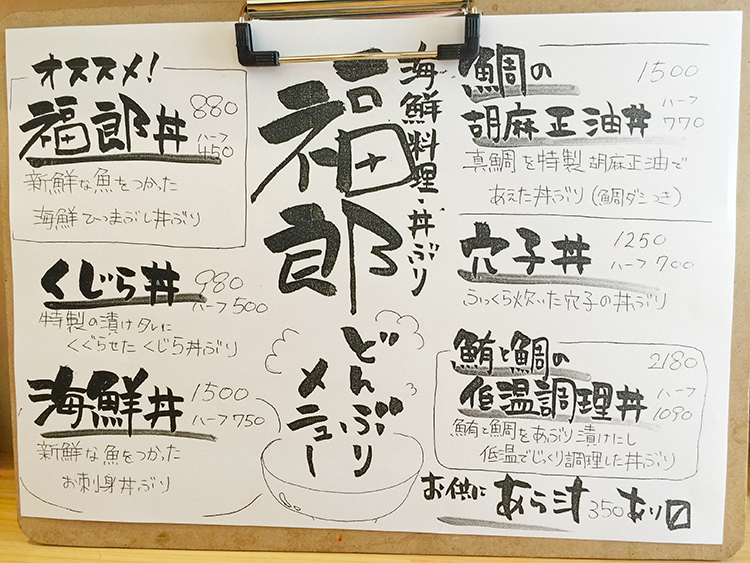 海鮮料理・丼ぶり
福郎
どんぶり
メニュー
オススメ!
福郎丼 880
ハーフ 450
新鮮な魚をつかった
海鮮ひつまぶし丼ぶり
くじら丼 980
ハーフ 500
特製の漬けタレに
くぐらせたくじら丼ぶり
海鮮丼 1500
ハーフ 750
新鮮な魚をつかった
お刺身丼ぶり
鯛の 1500
胡麻正油丼 ハーフ 770
真鯛を特製胡麻正油で
あえた丼ぶり(鯛ダシつき)
穴子丼 1250
ハーフ 700
ふっくら炊いた穴子の丼ぶり
鮪と鯛の 2180
低温調理丼 ハーフ 1090
鮪と鯛をあぶり漬けにし
低温でじっくり調理した丼ぶり
お供に あら汁 350 あり〼